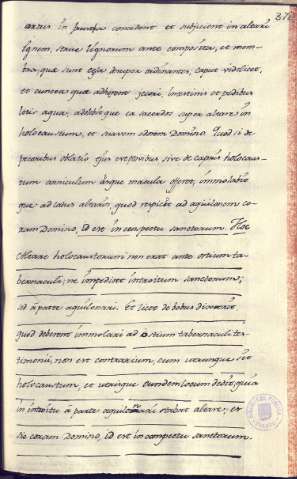 artus in frusta concident et subjicient in altari
lignorum, strue lignorum ante composita, et mem-
bra, quæ sunt cæsa desuper ordinantes, caput videlicet,
et cuncta quæ adhærent jecori, intestinis et pedibus
lotis aqua, adolebitque ea sacerdos super altare in
holocaustum, et suavem odorem Domino. Quod si de
pecoribus oblatio est, de ovibus sive de capris holocaus-
tum anniculum absque macula offeret, immolabit-
que ad latus altaris, quod respicit ad aquilonem co-
ram Domino, id est in conspectu sanctorum. Hoc
altare holocaustorum non erat ante ostium ta-
bernaculi, ne impediret introitum sanctorum,
sed à parte aquilonari. Et licet de bobus dixerit
quod deberent immolari ad ostium tabernaculi tes-
timonii, non est contrarium, cum utrumque sit
holocaustum, et utrique eundem locum dedit, quia
in introitu à parte aquilonari stabat altare, et
sic coram Domino, id est in conspectu sanctorum.